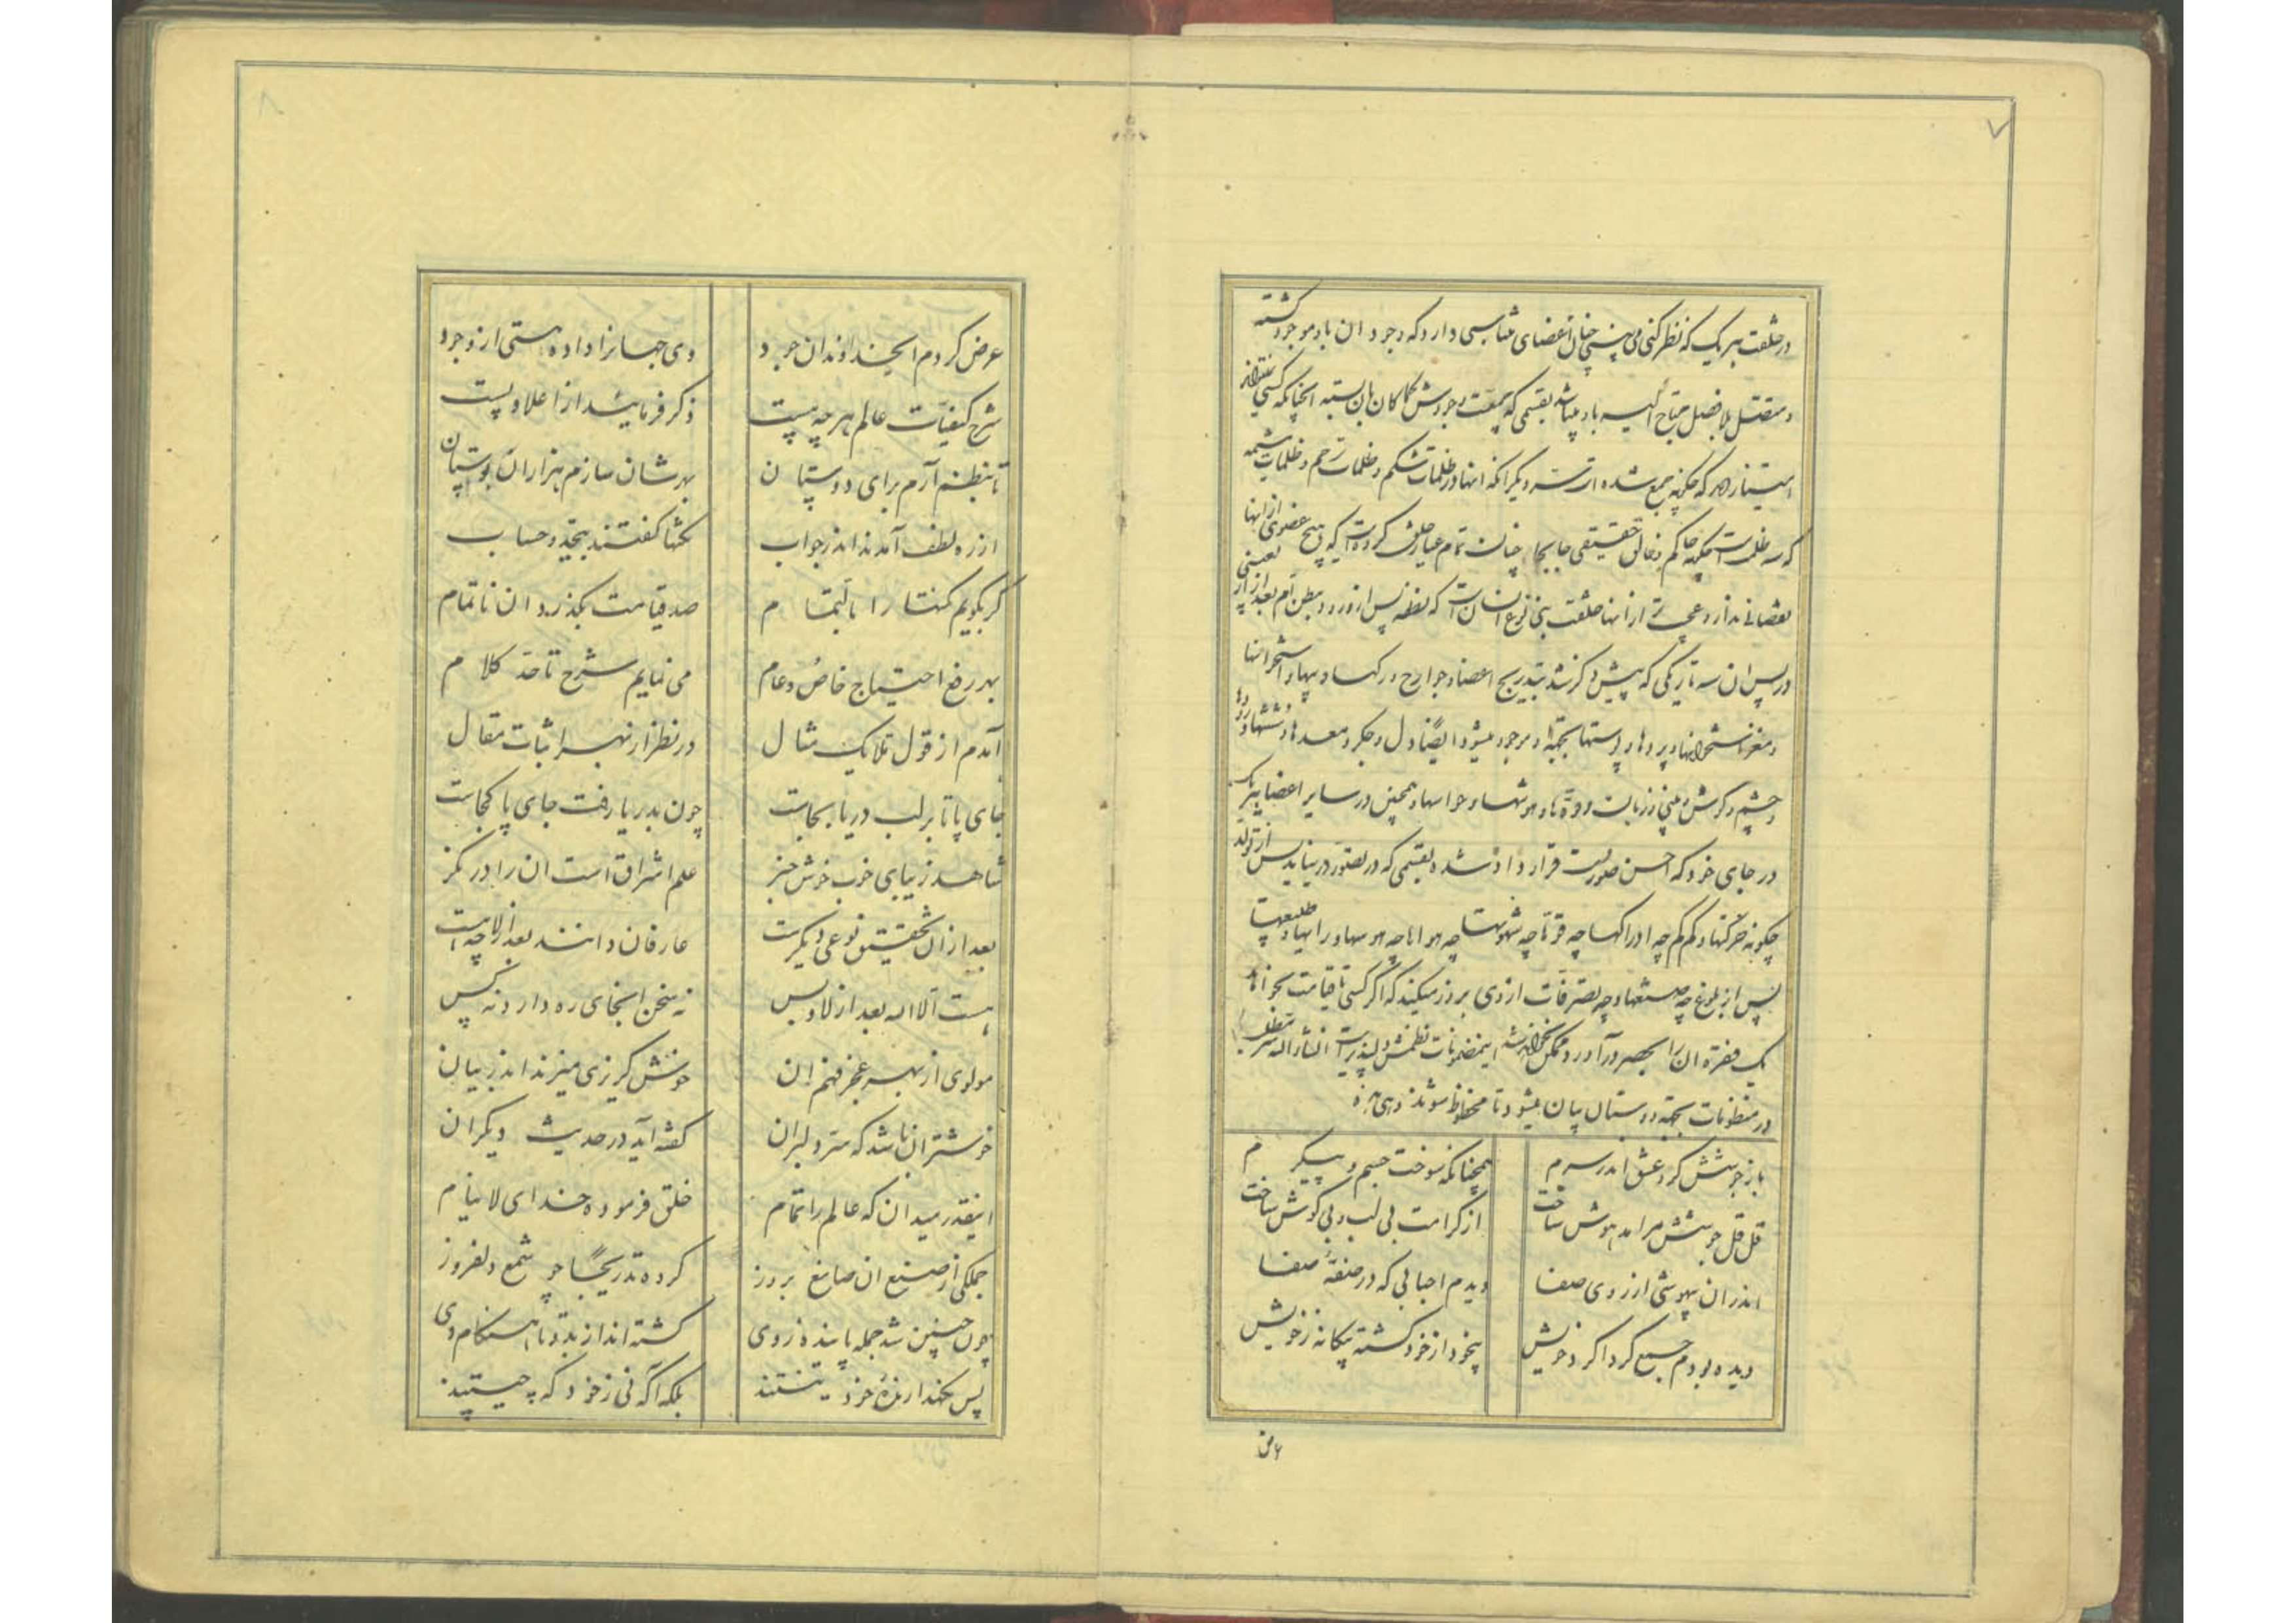 ۷
در خلقت هر یک که نظر کنی می بینی چنان اعضای متناسبی دارد که وجود ان باد موجود گشته
و متصل بلا فصل محتاج الیه باد میباشد بقسمی که جمعیت وجودش کماکان بان بسته انچنانکه کسی نتواند
امتیاز دهد که چگونه جمع شده است دیگر انکه انها در ظلمات شکم و ظلمات رحم و ظلمات مشیمه
که سه ظلمت است چگونه حاکم و خالق حقیقی جابجا چنان تمام عیار خلق کرده است که هیچ عضوی از انها
نقصانی ندارد و عجب تر از انها خلقت بنی نوع انسان است که نطفه پس از ورود در بطن ام بعد از
در پس ان سه تاریکی که پیش ذکر شد بتدریج اعضا و جوارح و رکها و پیها و استخوانها
و مغز استخوانها و پرده ها و پوستها بجهة او موجود میشود ایضا دل و جکر و معده ها و ششها و روده ها
و چشم و کوش و بینی و زبان و قوه ها و هوشها و حواسها و همچنین در سایر اعضا هر یک
در جای خود که احسن صورت قرار داده شده بقسمی که در تصور در نیاید پس از تولد
چگونه حرکتها و کم کم چه ادراکها چه قوتها چه شهوتها چه هواها چه هوسها و رایها و طبیعتها
پس از بلوغ چه صنعتها و چه تصرفات از وی بروز میکند که اگر کسی تا قیامت بخواهد
یک فقره ان را بحصر در آورد ممکن نخواهد شد اینمضمونات نظمش دلپذیر است انشاء الله
در منظومات بجهة دوستان بیان میشود تا محظوظ شوند و هی هذه
باز جوشش کرد عشق اندر سرم همچنانکه سوخت جسم و پیکرم
قل قل جوشش مرا مدهوش ساخت از کرامت بی لب و بی کوش ساخت
اندران بیهوشی از روی صفا دیدم احبابی که در صفهٔ صفا
دیده بودم جمع گرداگرد خویش بیخود از خود گشته بیگانه ز خویش
۸
عرض کردم ایخداوندان جود وی جهانرا داده هستی از وجود
شرح کیفیات عالم هر چه هست ذکر فرمائید از اعلا و پست
تا بنظم آرم برای دوستان بهرشان سازم هزاران بوستان
از ره لطف آمدند اندر جواب نکتها گفتند بیحد و حساب
گر بگویم گفتها را بالتمام صد قیامت بگذرد ان ناتمام
بهر رفع احتیاج خاص و عام می نمایم شرح تا حد کلام
آمدم از قول تا یک مثال در نظر از بهر اثبات مقال
جای پا تا بر لب دریا بجاست چون بدریا رفت جای پا کجاست
شاهد زیبای خوب خوش خبر علم اشراق است ان را در نگر
بعد ازان تحقیق نوعی دیگرست عارفان دانند بعد از لا چه است
هست الا اله بعد از لا و بس نه سخن اینجای ره دارد نه کس
مولوی از بهر عجز فهم ان خوش گریزی میزند اندر بیان
خوشتر ان باشد که سر دلبران گفته آید در حدیث دیگران
اینقدر میدان که عالم را تمام خلق فرموده خدای لاینام
جملگی از صنع ان صانع بروز کرده تدریجا چو شمع دلفروز
چون چنین شد جمله پاینده ز وی گشته اند از بدو تا هنگام وی
پس نگهدارنده خود نیستند بلکه آگه نی ز خود که چیستند